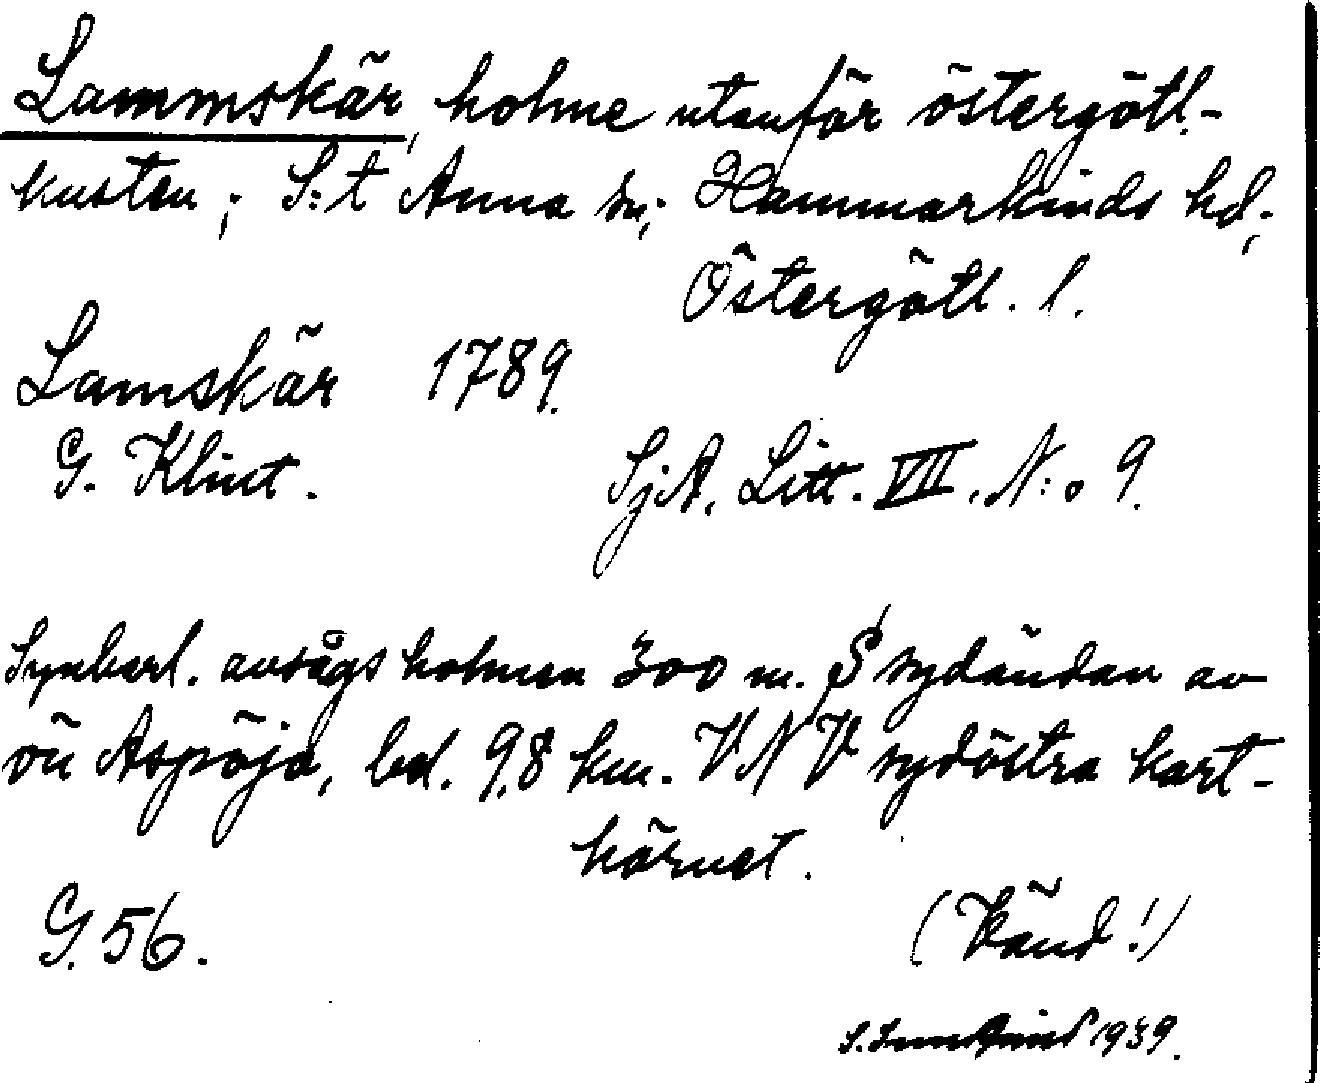 Lammskär, holme utanför östergötl.-
kusten; S:t Anna sn; Hammarkinds hd;
Östergötl. l.
Lamskär 1789.
G. Klint. SjA. Litt. VII. N:o 9.
Synbarl. avsågs holmen 300 m. S sydändan av
ön Aspöja, bel. 9,8 km. VNV sydöstra kart-
hörnet.
G. 56. (Vänd!)
S. 1939.